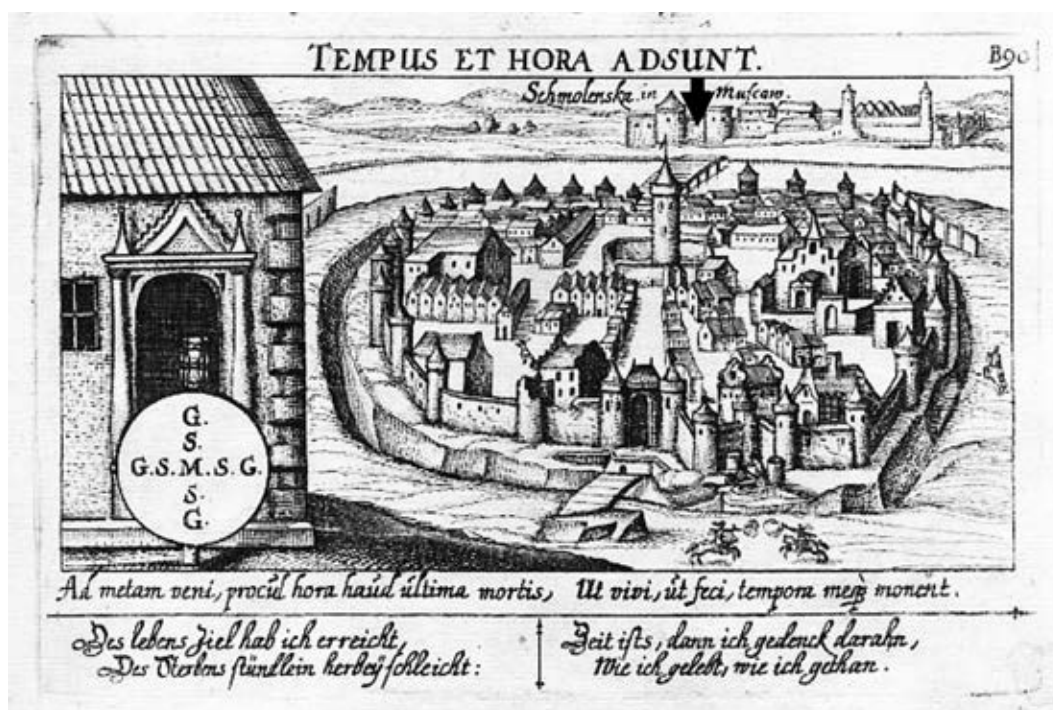 TEMPUS ET HORA ADSUNT.
B90
Schmolenska in Muscaw.
G.
S.
G.S.M.S.G.
S.
G.
Ad metam veni, procul hora haud ultima mortis, Ut vivi, ut feci, tempora meq₃ monent.
Des lebens Ziel hab ich erreicht,
Des Sterbens stündlein herbeÿ schleicht:
Zeit ists, dann ich gedenck darahn,
Wie ich gelebt, wie ich gethan.